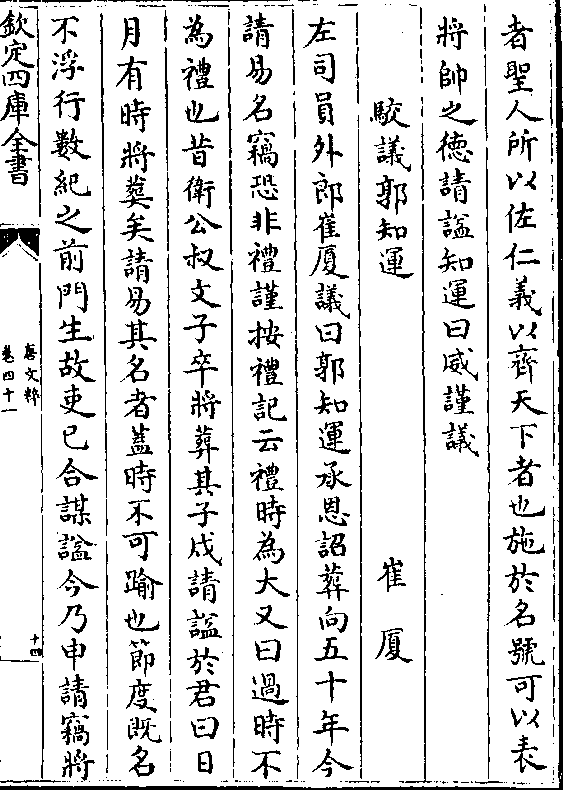 者聖人所以佐仁義以齊天下者也施於名號可以表
將帥之德請諡知運曰威謹議
駮議郭知運 崔厦
左司員外郎崔厦議曰郭知運承恩詔葬向五十年今
請易名竊恐非禮謹按禮記云禮時為大又曰過時不
為禮也昔衛公叔文子卒將葬其子戍請諡於君曰日
月有時將葬矣請易其名者蓋時不可踰也節度既名
不浮行數紀之前門生故吏已合謀諡今乃申請竊將
欽定四庫全書
唐文粹
卷四十一
十四